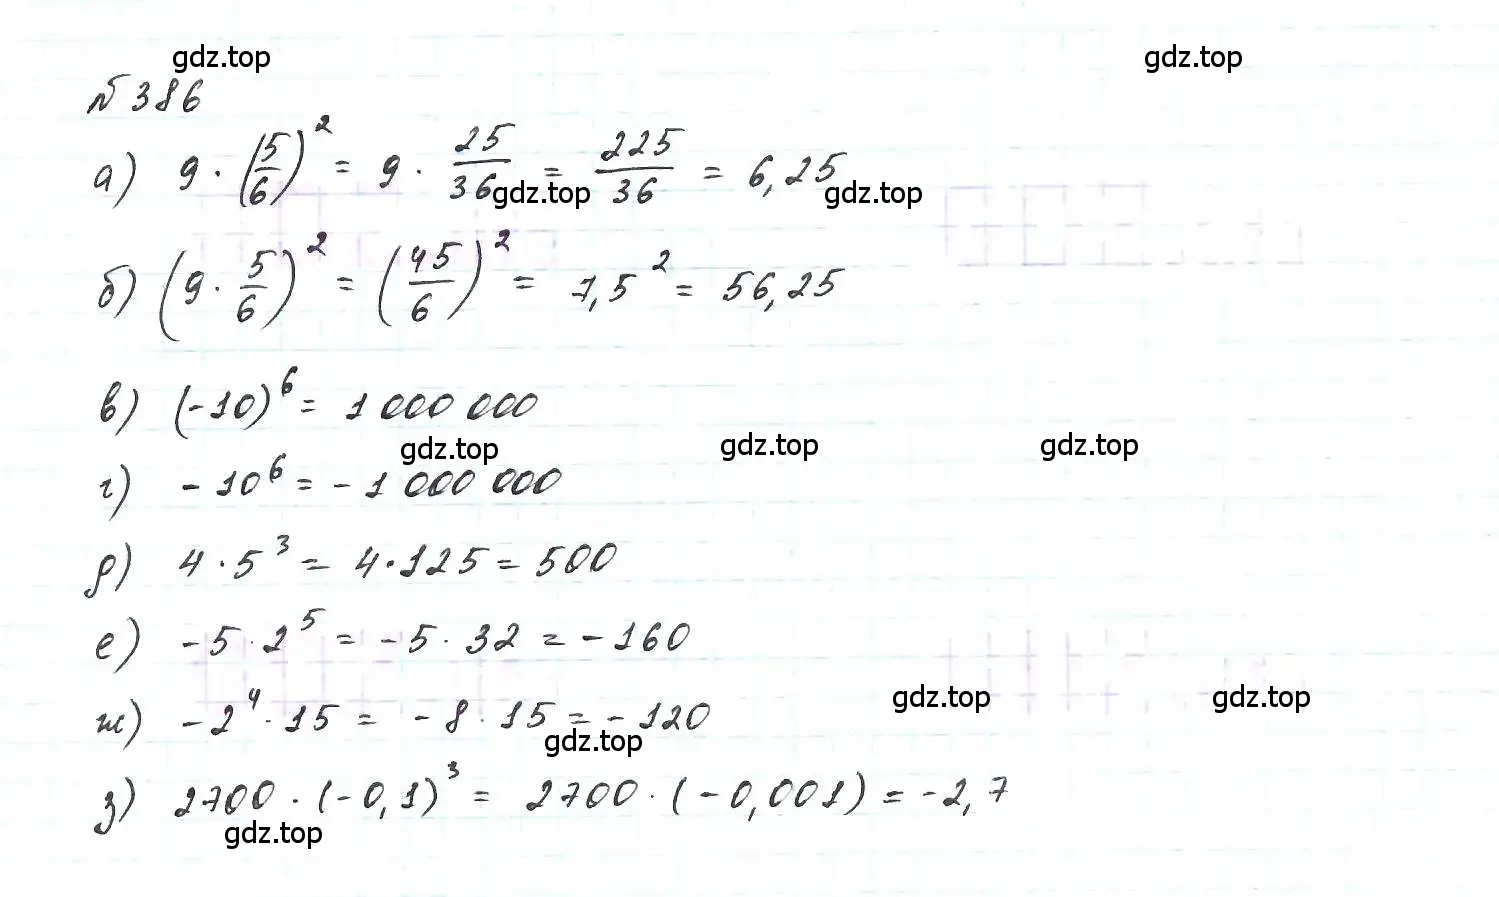 gdz.top gdz.top
№ 386
а) 9 · (5/6)² = 9 · 25/36 = 225/36 = 6,25
gdz.top gdz.top
б) (9 · 5/6)² = (45/6)² = 7,5² = 56,25
в) (-10)⁶ = 1 000 000
gdz.top gdz.top gdz.top
г) - 10⁶ = - 1 000 000
д) 4 · 5³ = 4 · 125 = 500
е) - 5 · 2⁵ = - 5 · 32 = - 160
gdz.top gdz.top
ж) - 2⁴ · 15 = - 8 · 15 = - 120
gdz.top
з) 2700 · (-0,1)³ = 2700 · (-0,001) = -2,7
gdz.top